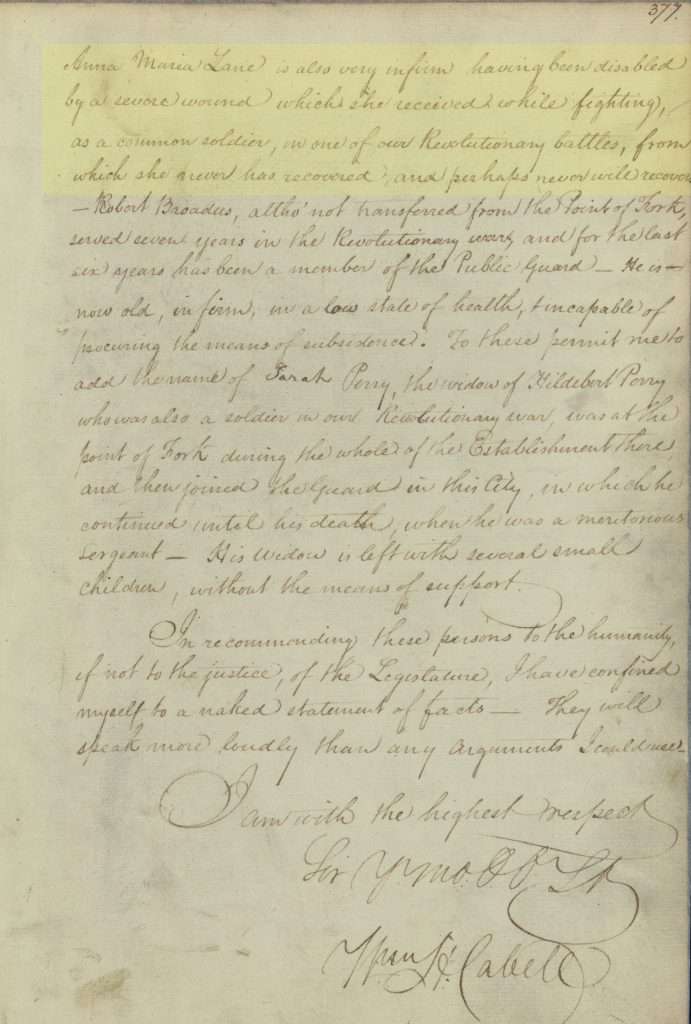 377.
Anna Maria Lane is also very infirm having been disabled
by a severe wound which she received while fighting,
as a common soldier, in one of our Revolutionary battles, from
which she never has recovered, and perhaps never will recover.
— Robert Broadus, altho' not transferred from the Point of Fork,
served seven years in the Revolutionary war, and for the last
six years has been a member of the Public Guard — He is
now old, infirm, in a low state of health, & incapable of
procuring the means of subsistence. To these permit me to
add the name of Sarah Perry, the widow of Hildebert Perry
who was also a soldier in our Revolutionary war, was at the
point of Fork during the whole of the Establishment there,
and then joined the Guard in this City, in which he
continued until his death, when he was a meritorious
Sergeant — His Widow is left with several small
children, without the means of support.
In recommending these persons to the humanity,
if not to the justice, of the Legislature, I have confined
myself to a naked statement of facts — They will
speak more loudly than any arguments I could use.
I am with the highest respect
Sir Yr. mo. Ob. St.
Wm H. Cabell